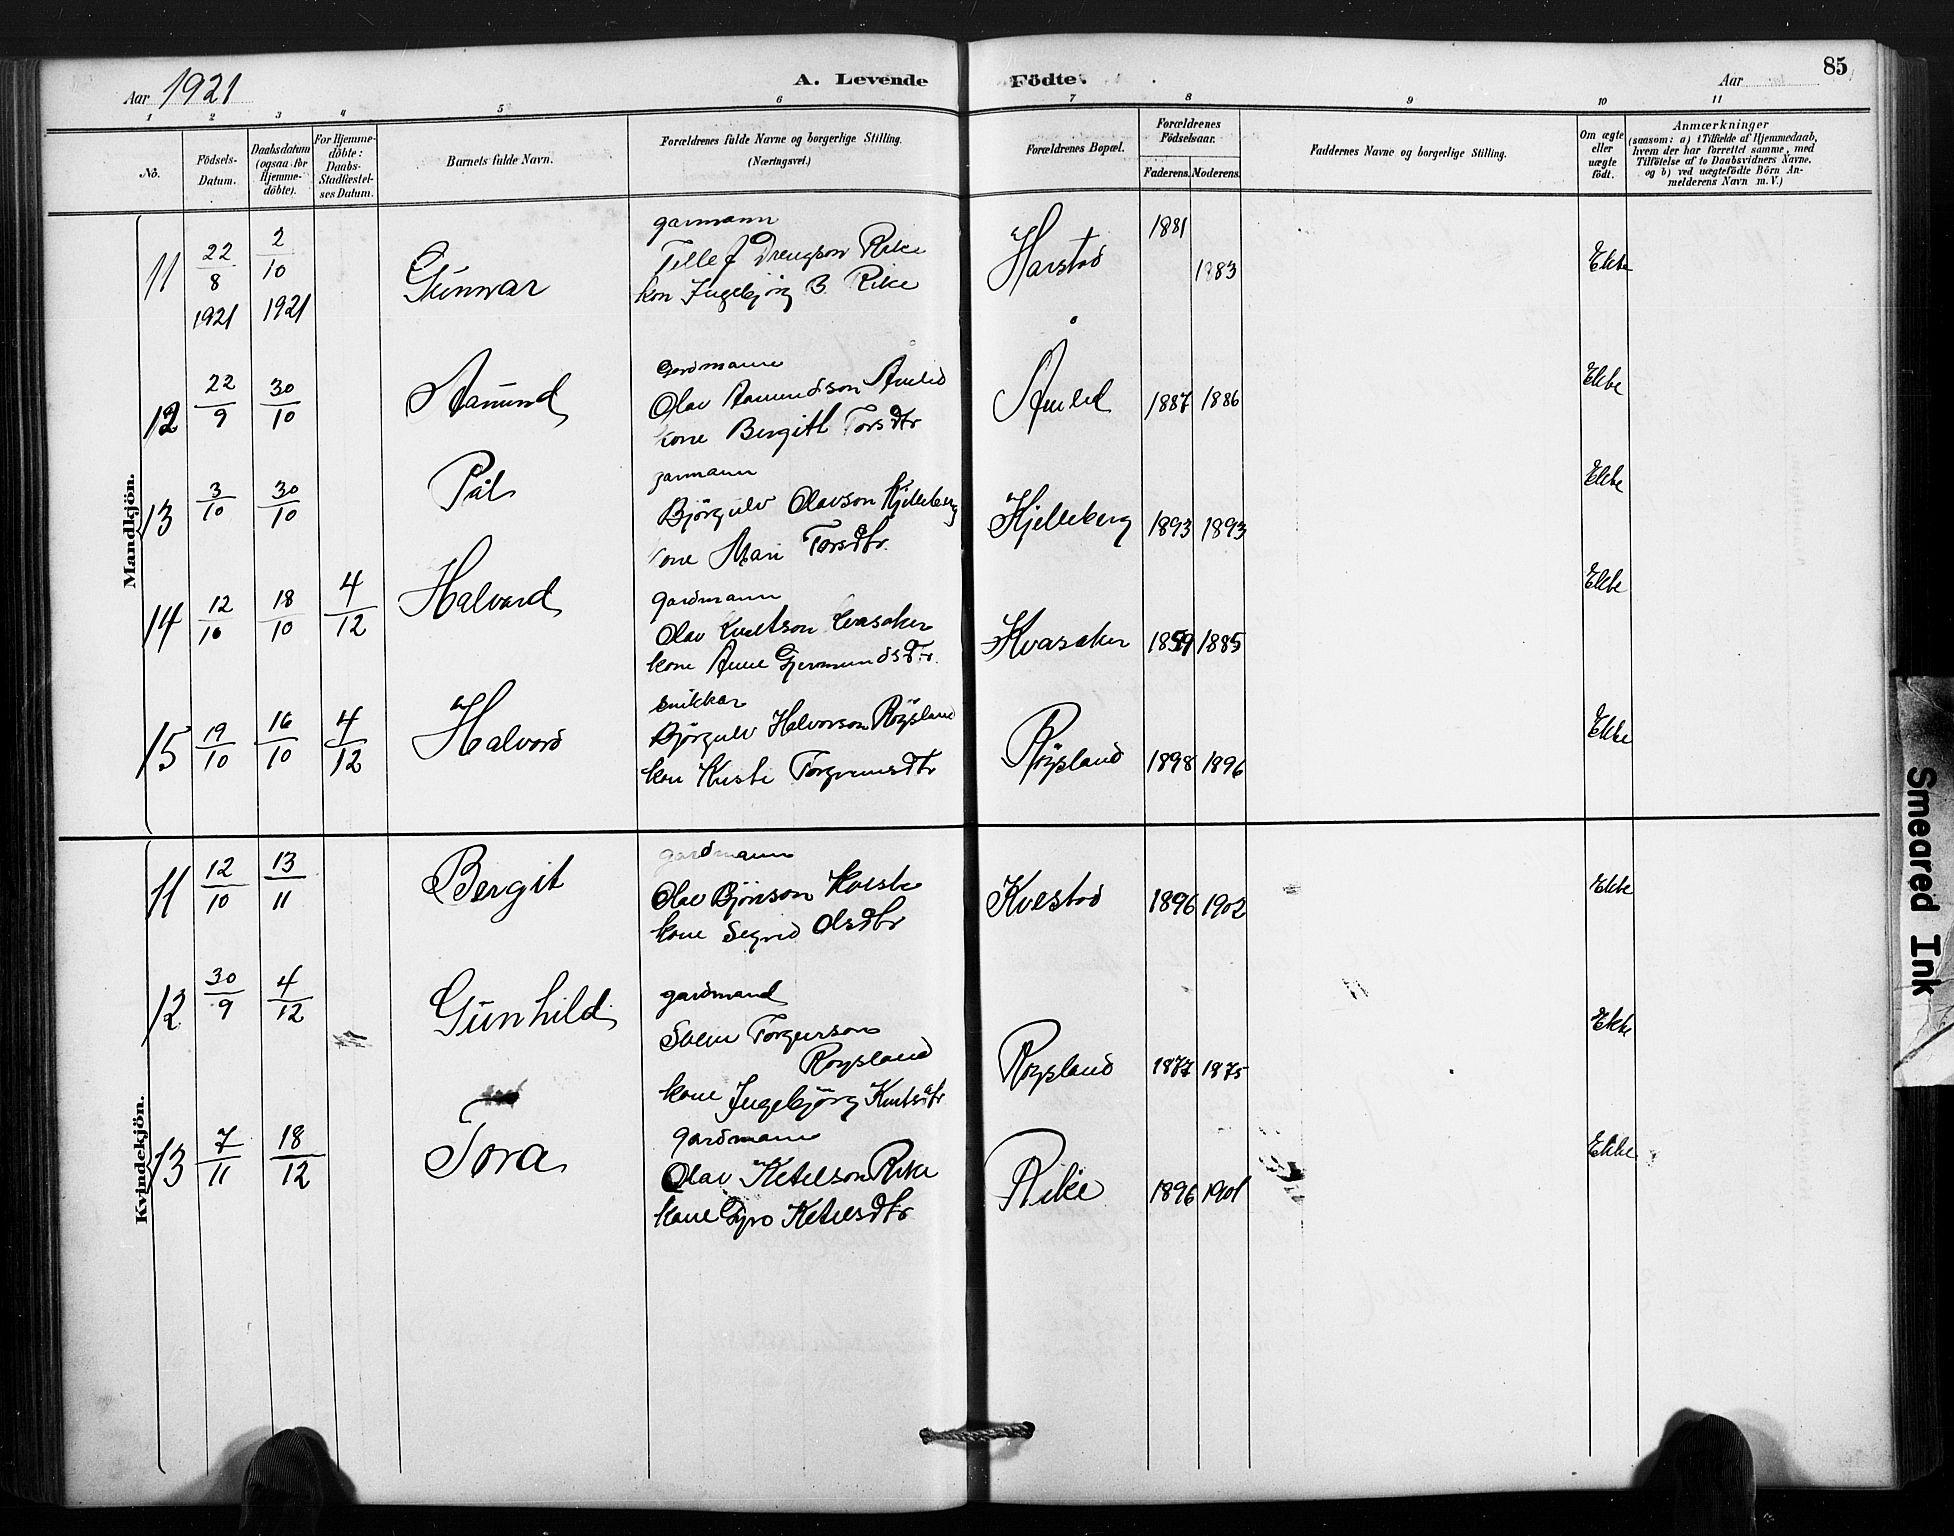 Aar 1921
A. Levende Födte.
Aar
85
1 2 3 4 5 6 7 8 9 10 11
No.
Födsels-Datum.
Daabsdatum (ogsaa for Hjemme-döbte).
For Hjemme-döbte: Daabs-Stadfæstel-ses Datum.
Barnets fulde Navn.
Forældrenes fulde Navne og borgerlige Stilling.
(Næringsvei.)
Forældrenes Bopæl.
Forældrenes Födselsaar.
Faderens. Moderens.
Faddernes Navne og borgerlige Stilling.
Om ægte eller uægte födt.
Anmærkninger
(saasom: a) i Tilfælde af Hjemmedaab,
hvem der har forrettet samme, med
Tilföielse af to Daabsvidners Navne,
og b) ved uægtefödte Börn An-
melderens Navn m. V.)
Mandkjön.
garmann
11 22/8 1921 2/10 1921 Gunnar Tellef Drengson Rike Harstad 1881 1883 Ekte
kon Ingebjörg B. Rike
Gardmann
12 22/9 30/10 Aamund Olav Aamundson Åmlid Åmlid 1887 1886 Ekte
kone Bergitt Torsdtr
garmann
13 3/10 30/10 Pål Björgulv Olavson Kjelleberg Kjelleberg 1893 1893 Ekte
kone Mari Torsdtr.
gardmann
14 12/10 18/10 4/12 Halvard Olav Knutson Kvasaker Kvasaker 1859 1885 Ekte
kone Anne Gjermundsdtr.
snikkar
15 19/10 16/10 4/12 Halvord Björgulv Halvorson Röysland Röysland 1898 1896 Ekte
kon Torgrimsdtr
Kvindekjön.
gardmann
11 12/10 13/11 Bergit Olav Björnson Kvestad 1896 1902 Ekte
kone Sigrid Olsdtr
gardmand
12 30/9 4/12 Gunhild Svein Torgerson
Roysland Roysland 1877 1875 Ekte
kone Ingebjörg Knutsdtr
gardmann
13 7/11 18/12 Tora Olav Ketelson Rike Rike 1896 1901 Ekte
kone Gyro Ketelsdtr
Smeared Ink